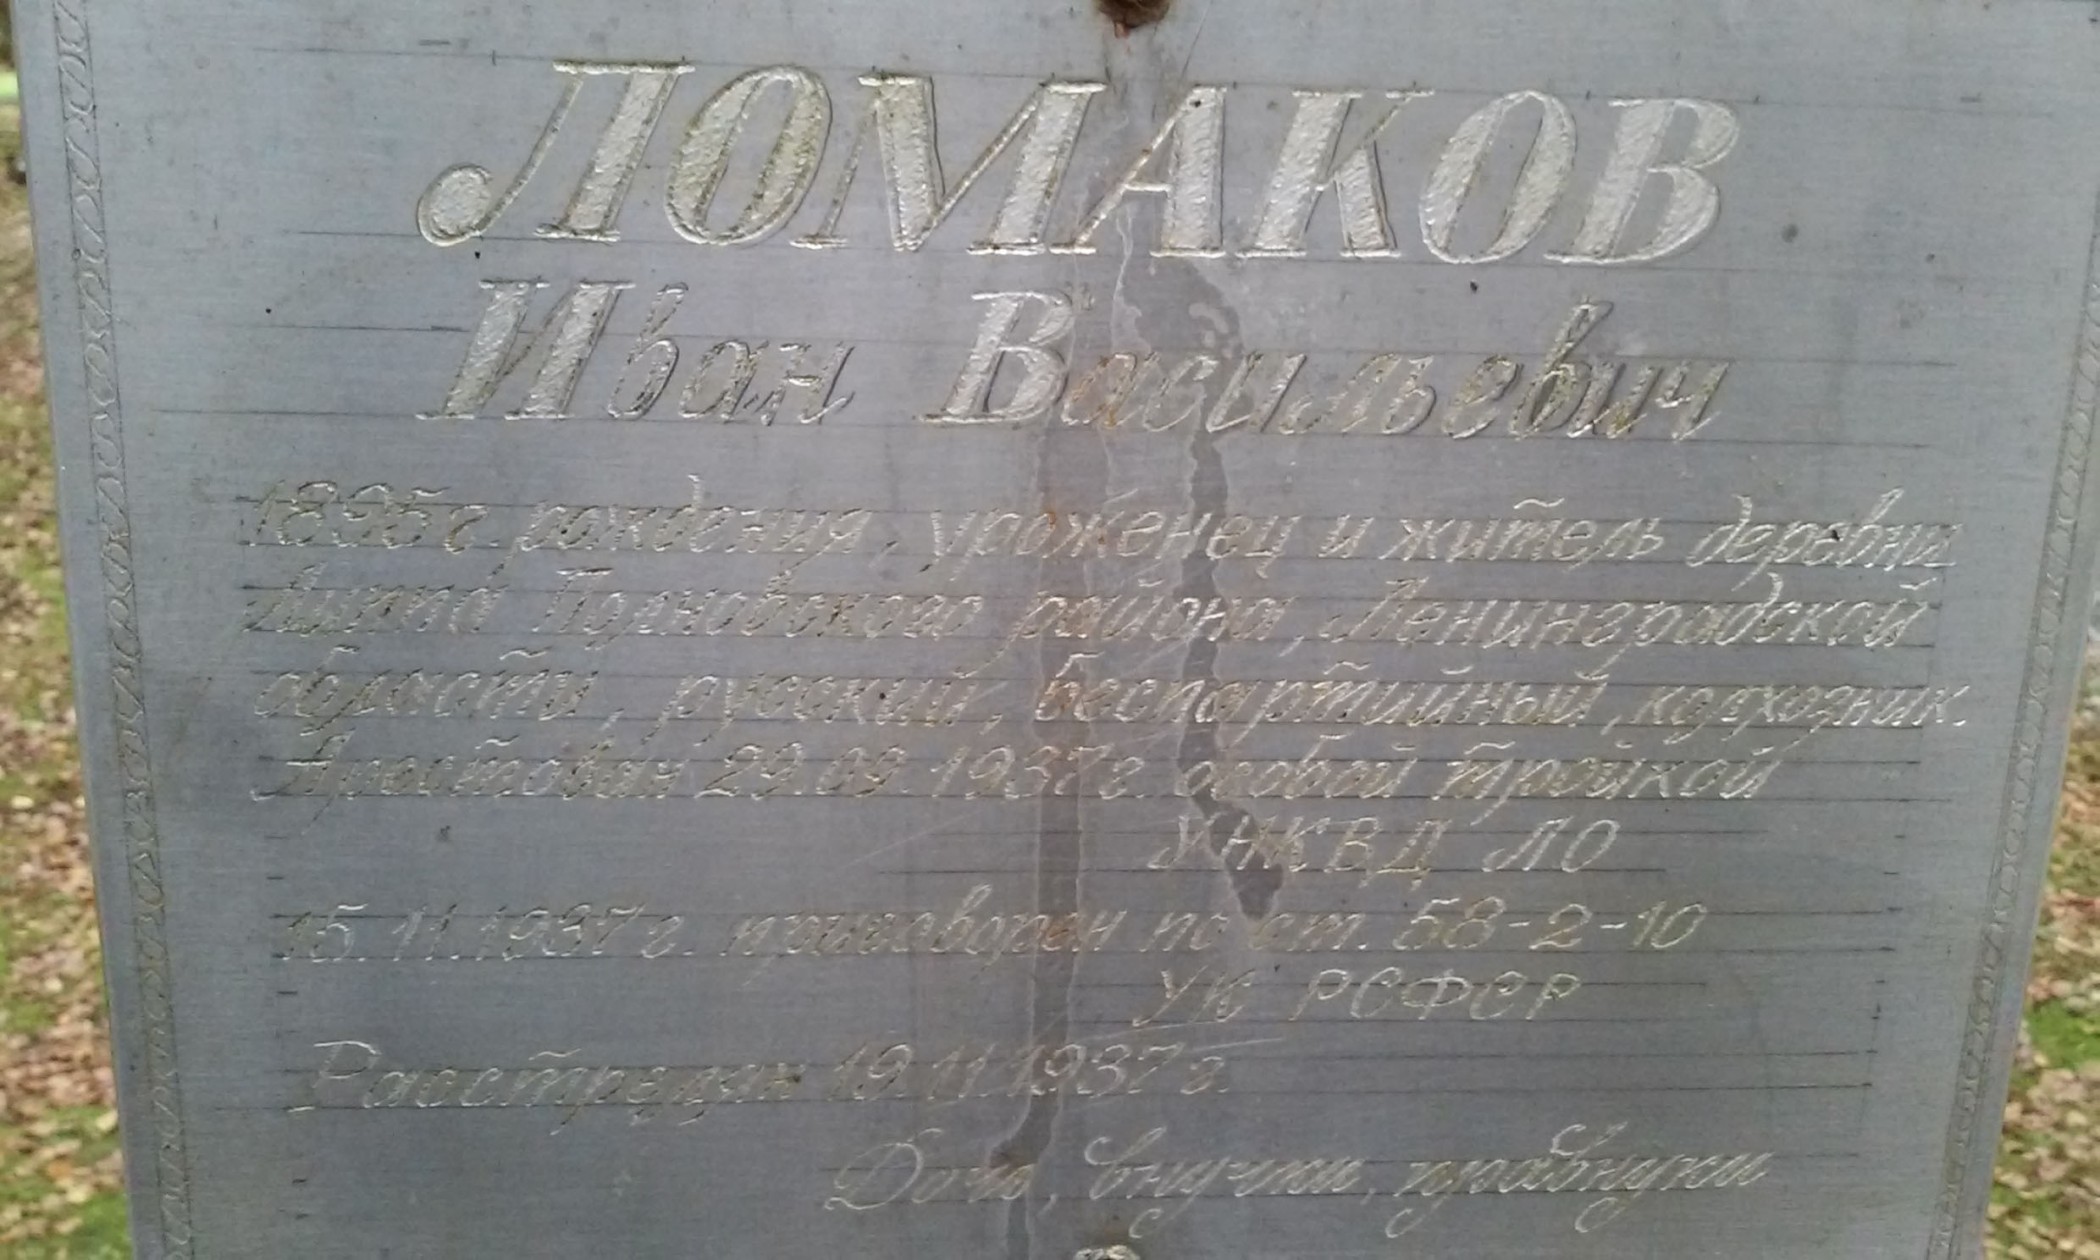 ЛОМАКОВ
Иван Васильевич
1895 г. рождения, уроженец и житель деревни
Полновского района, Ленинградской
области, русский, беспартийный, колхозник.
Арестован 29.09.1937г. особой тройкой
УНКВД ЛО
15.11.1937 г. приговорен по ст. 58-2-10
УК РСФСР
Расстрелян 19.11.1937 г.
Дочь, внучки, правнуки